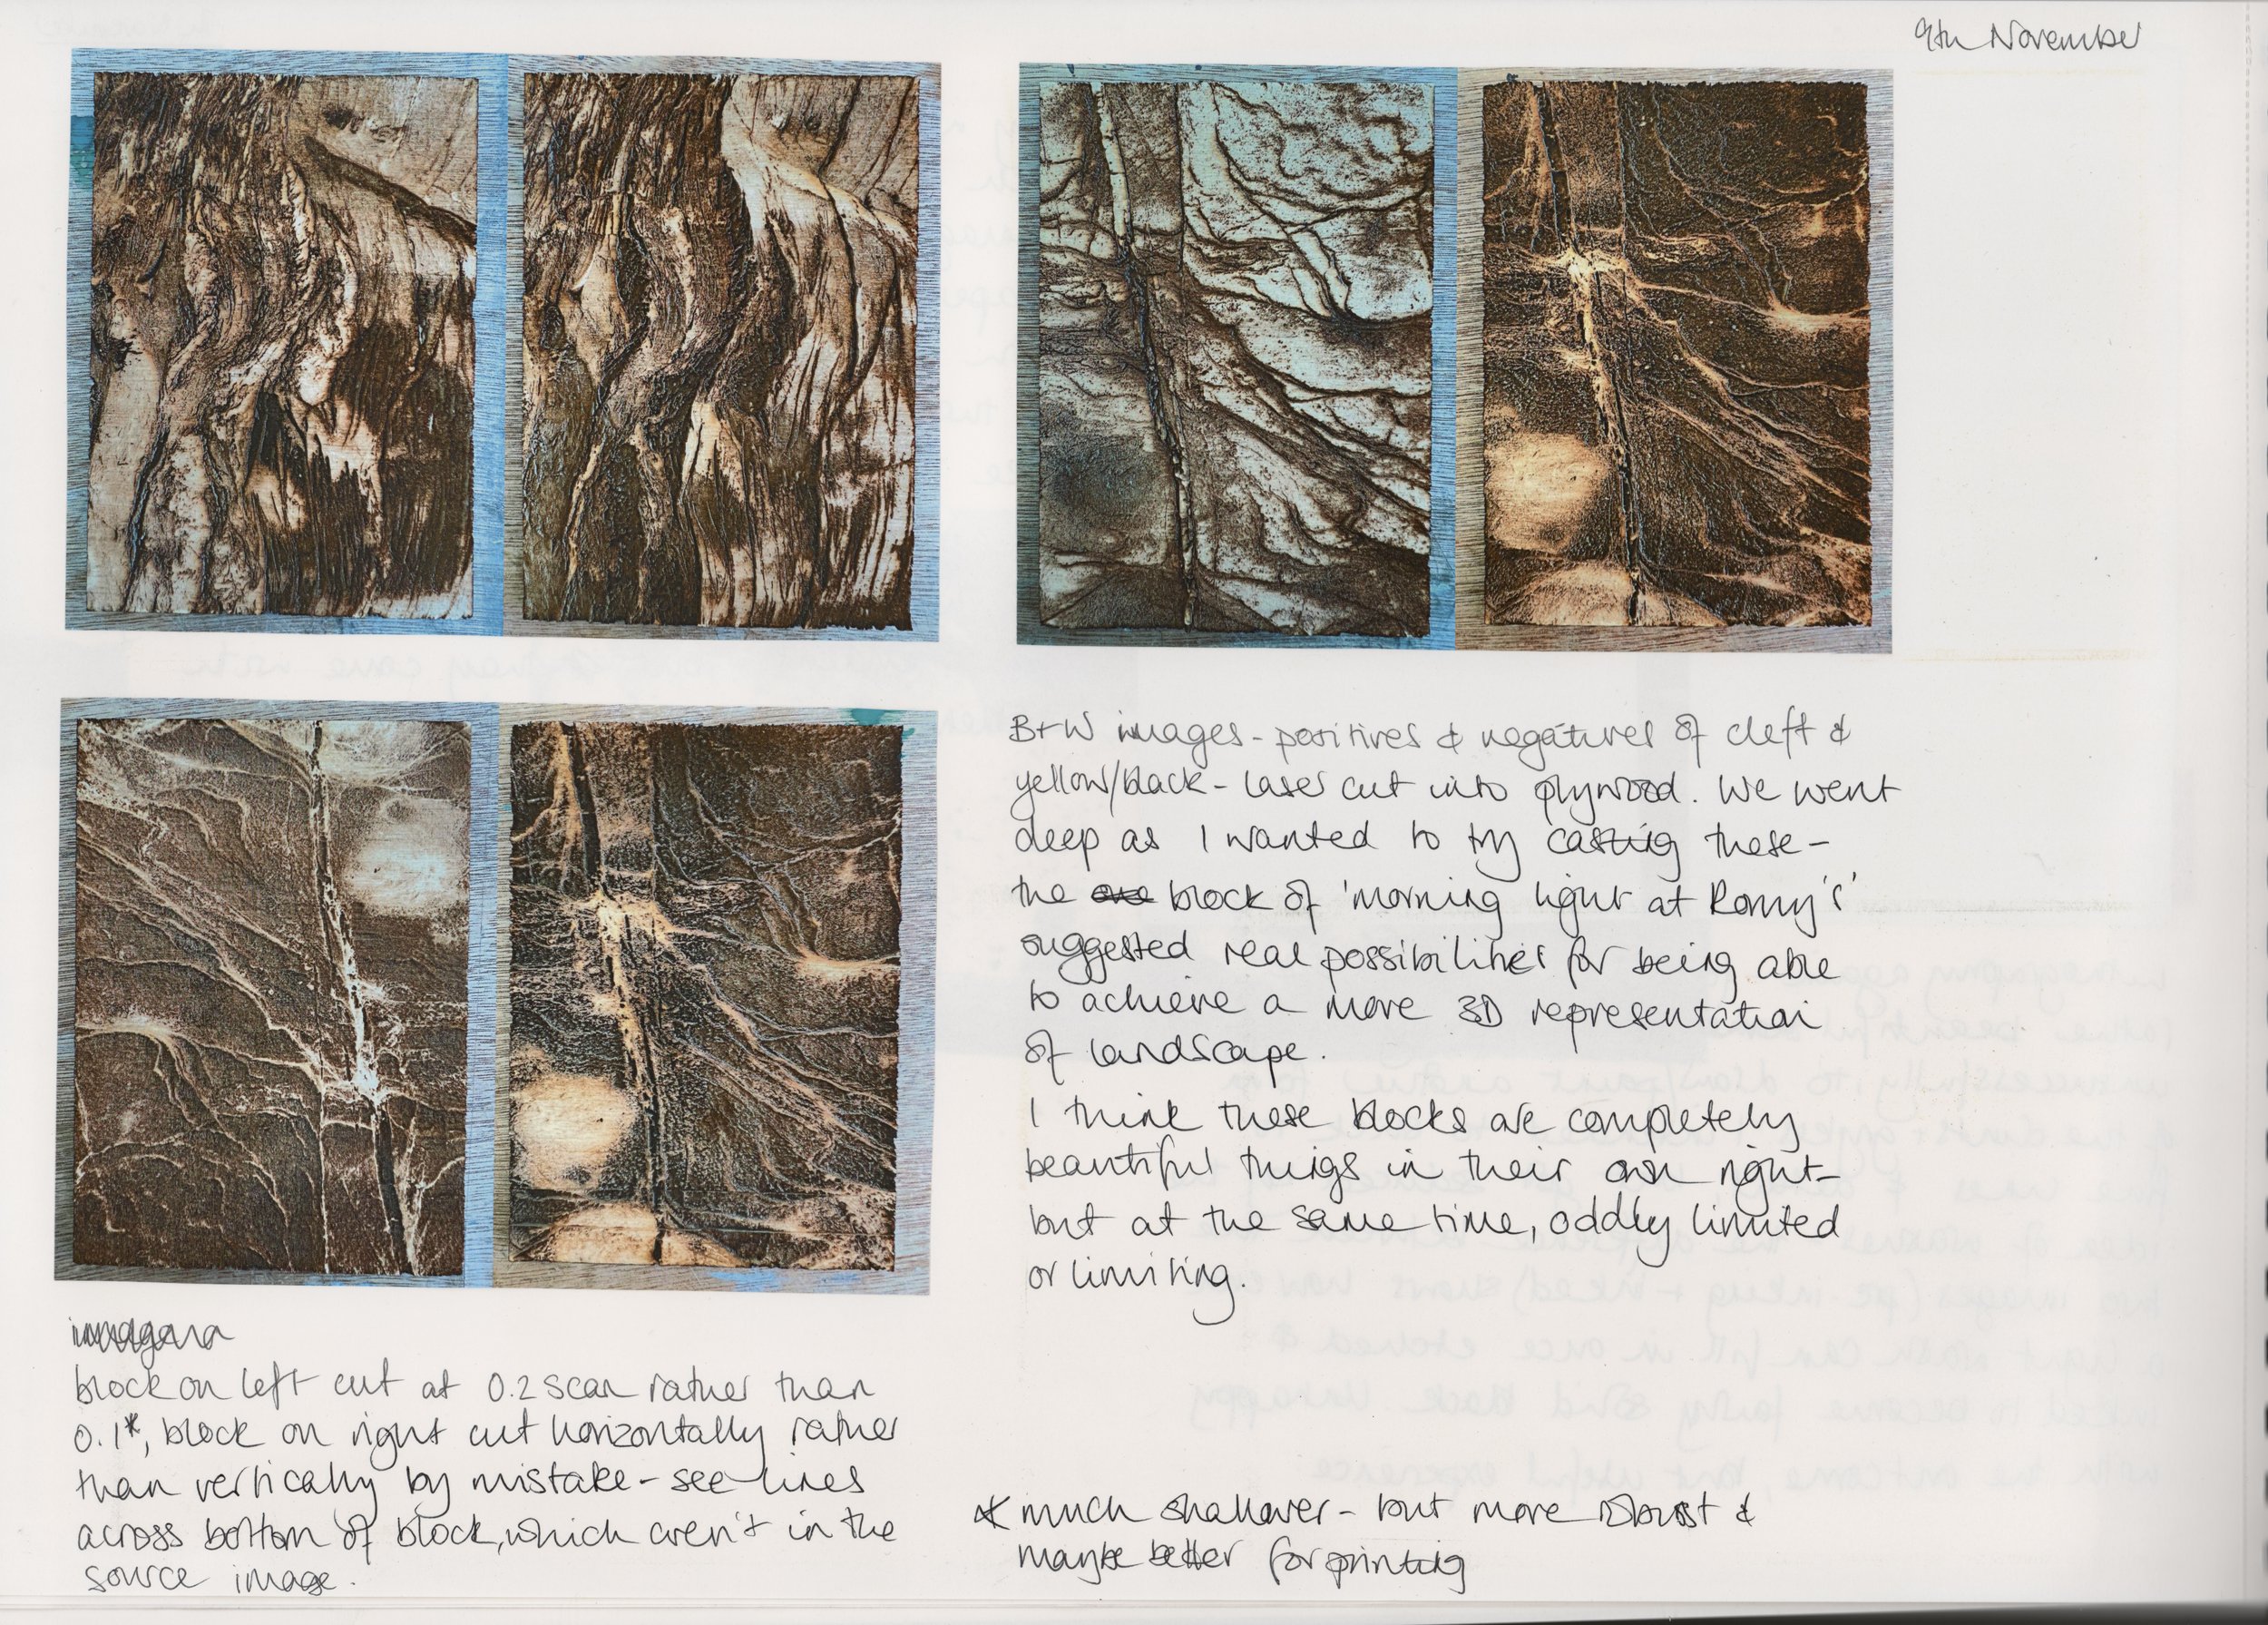 9th November
B+W images - positives & negatives of cleft &
yellow/black - laser cut into plywood. We went
deep as I wanted to try casting these -
the one block of 'morning light at Romy's'
suggested real possibilities for being able
to achieve a more 3D representation
of landscape.
I think these blocks are completely
beautiful things in their own right -
but at the same time, oddly limited
or limiting.
block on left cut at 0.2 scan rather than
0.1*, block on right cut horizontally rather
than vertically by mistake - see lines
across bottom of block, which aren't in the
source image.
* much shallower - but more robust &
maybe better for printing